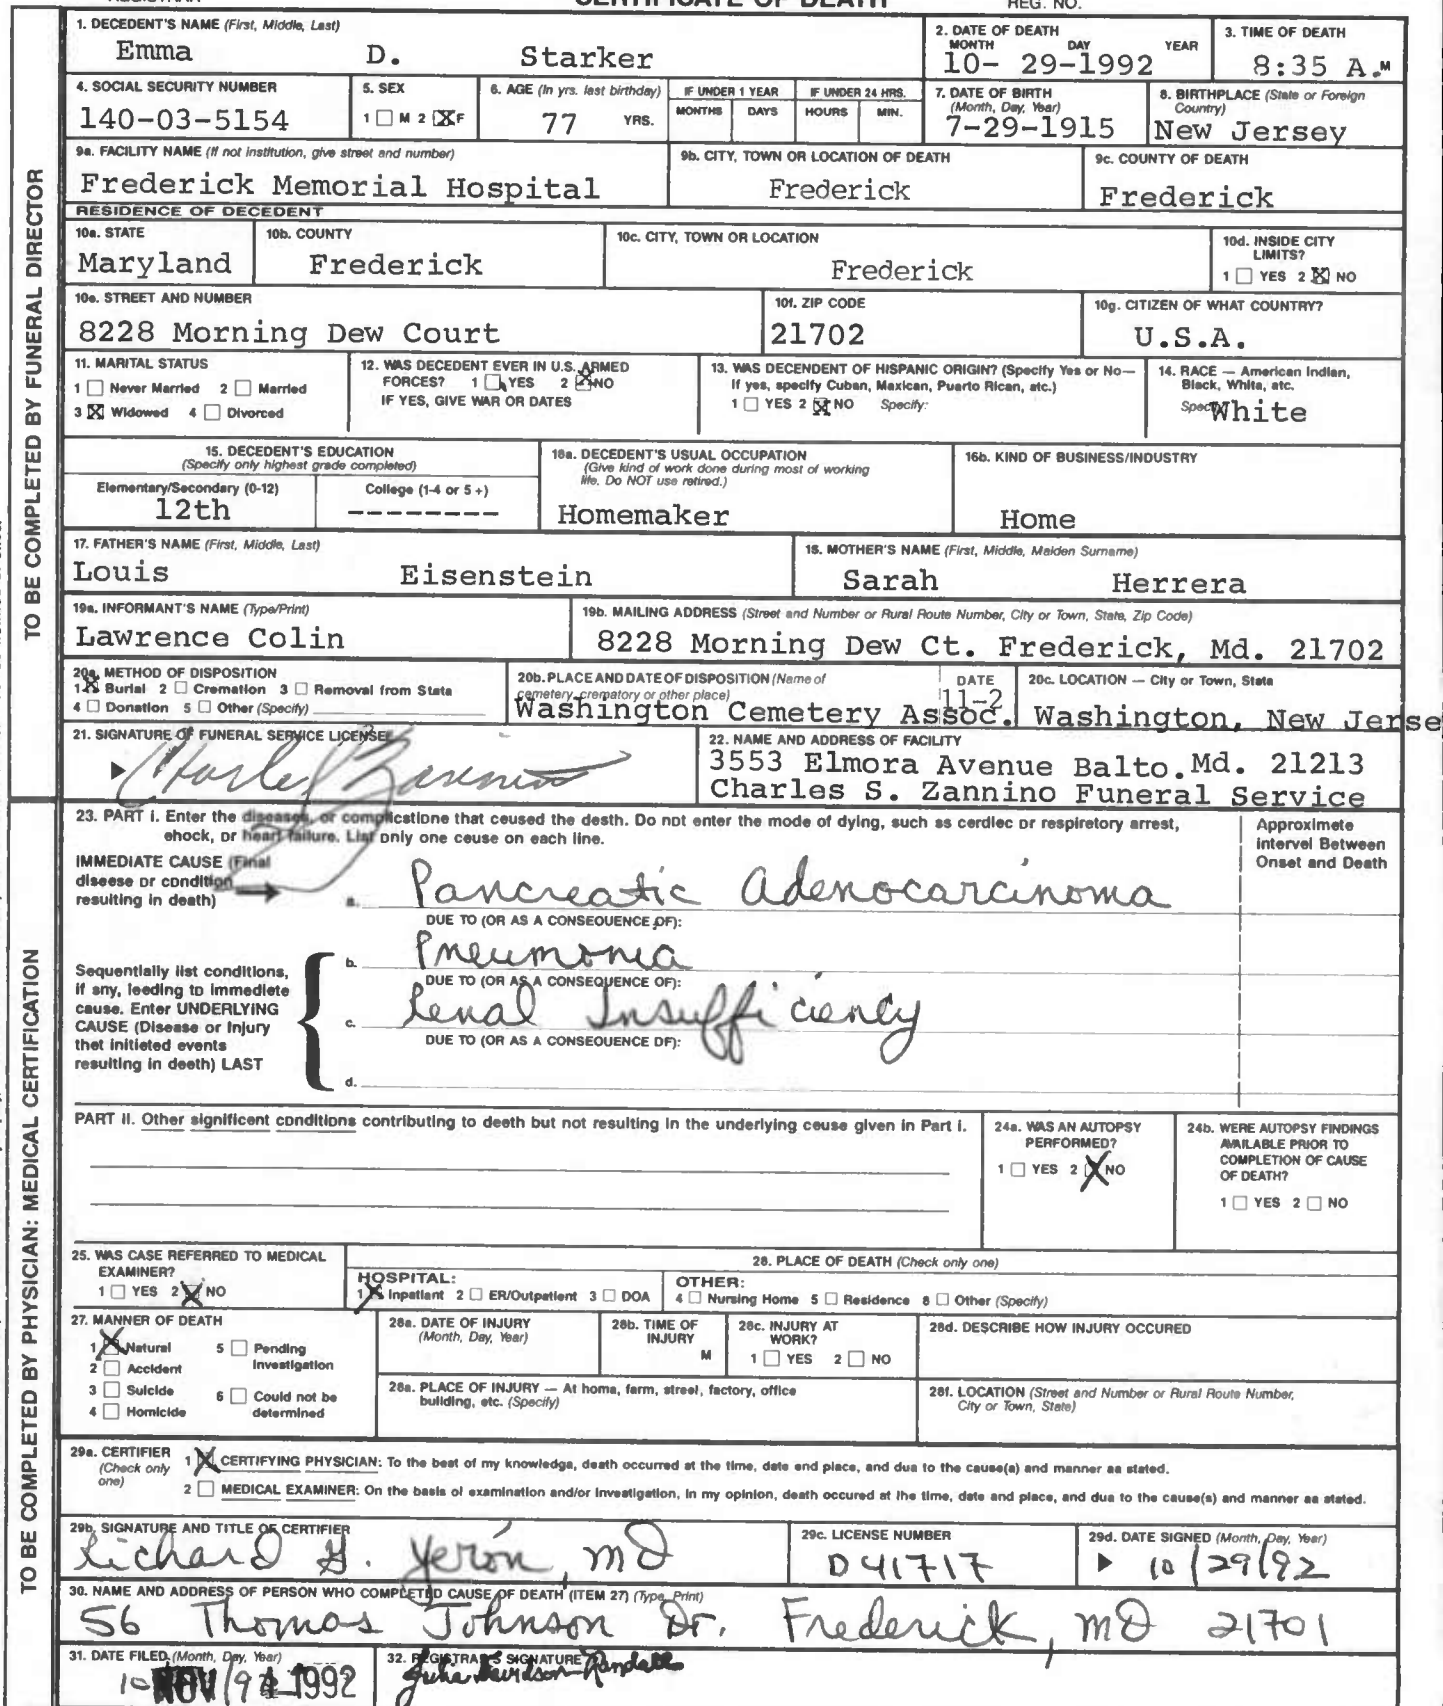 CERTIFICATE OF DEATH
REG. NO.
1. DECEDENT'S NAME (First, Middle, Last)
Emma D. Starker
2. DATE OF DEATH
MONTH DAY YEAR
10- 29-1992
3. TIME OF DEATH
8:35 A.M
4. SOCIAL SECURITY NUMBER
140-03-5154
5. SEX
1 M 2 X F
6. AGE (In yrs. last birthday)
77 YRS.
IF UNDER 1 YEAR
MONTHS DAYS
IF UNDER 24 HRS.
HOURS MIN.
7. DATE OF BIRTH
(Month, Day, Year)
7-29-1915
8. BIRTHPLACE (State or Foreign
Country)
New Jersey
9a. FACILITY NAME (If not institution, give street and number)
Frederick Memorial Hospital
9b. CITY, TOWN OR LOCATION OF DEATH
Frederick
9c. COUNTY OF DEATH
Frederick
RESIDENCE OF DECEDENT
10a. STATE
Maryland
10b. COUNTY
Frederick
10c. CITY, TOWN OR LOCATION
Frederick
10d. INSIDE CITY
LIMITS?
1 YES 2 X NO
10e. STREET AND NUMBER
8228 Morning Dew Court
10f. ZIP CODE
21702
10g. CITIZEN OF WHAT COUNTRY?
U.S.A.
11. MARITAL STATUS
1 Never Married 2 Married
3 X Widowed 4 Divorced
12. WAS DECEDENT EVER IN U.S. ARMED
FORCES? 1 YES 2 X NO
IF YES, GIVE WAR OR DATES
13. WAS DECENDENT OF HISPANIC ORIGIN? (Specify Yes or No—
If yes, specify Cuban, Mexican, Puerto Rican, etc.)
1 YES 2 X NO Specify:
14. RACE — American Indian,
Black, White, etc.
White
15. DECEDENT'S EDUCATION
(Specify only highest grade completed)
Elementary/Secondary (0-12)
12th
College (1-4 or 5 +)
--------
16a. DECEDENT'S USUAL OCCUPATION
(Give kind of work done during most of working
life. Do NOT use retired.)
Homemaker
16b. KIND OF BUSINESS/INDUSTRY
Home
17. FATHER'S NAME (First, Middle, Last)
Louis Eisenstein
18. MOTHER'S NAME (First, Middle, Maiden Surname)
Sarah Herrera
19a. INFORMANT'S NAME (Type/Print)
Lawrence Colin
19b. MAILING ADDRESS (Street and Number or Rural Route Number, City or Town, State, Zip Code)
8228 Morning Dew Ct. Frederick, Md. 21702
20a. METHOD OF DISPOSITION
1 X Burial 2 Cremation 3 Removal from State
4 Donation 5 Other (Specify)
20b. PLACE AND DATE OF DISPOSITION (Name of
cemetery, crematory or other place)
DATE
11-2
Washington Cemetery Assoc.
20c. LOCATION — City or Town, State
Washington, New Jerse
21. SIGNATURE OF FUNERAL SERVICE LICENSEE
22. NAME AND ADDRESS OF FACILITY
3553 Elmora Avenue Balto. Md. 21213
Charles S. Zannino Funeral Service
TO BE COMPLETED BY FUNERAL DIRECTOR
23. PART I. Enter the diseases, or complications that caused the death. Do not enter the mode of dying, such as cardiac or respiratory arrest,
shock, or heart failure. List only one cause on each line.
Approximate
Interval Between
Onset and Death
IMMEDIATE CAUSE (Final
disease or condition
resulting in death)
a. Pancreatic Adenocarcinoma
DUE TO (OR AS A CONSEQUENCE OF):
b. Pneumonia
DUE TO (OR AS A CONSEQUENCE OF):
c. Renal Insufficiency
DUE TO (OR AS A CONSEQUENCE OF):
d.
Sequentially list conditions,
if any, leading to immediate
cause. Enter UNDERLYING
CAUSE (Disease or injury
that initiated events
resulting in death) LAST
PART II. Other significant conditions contributing to death but not resulting in the underlying cause given in Part I.
24a. WAS AN AUTOPSY
PERFORMED?
1 YES 2 X NO
24b. WERE AUTOPSY FINDINGS
AVAILABLE PRIOR TO
COMPLETION OF CAUSE
OF DEATH?
1 YES 2 NO
25. WAS CASE REFERRED TO MEDICAL
EXAMINER?
1 YES 2 X NO
26. PLACE OF DEATH (Check only one)
HOSPITAL:
1 X Inpatient 2 ER/Outpatient 3 DOA
OTHER:
4 Nursing Home 5 Residence 6 Other (Specify)
27. MANNER OF DEATH
1 X Natural 5 Pending
Investigation
2 Accident
3 Suicide
6 Could not be
determined
4 Homicide
28a. DATE OF INJURY
(Month, Day, Year)
28b. TIME OF
INJURY
M
28c. INJURY AT
WORK?
1 YES 2 NO
28d. DESCRIBE HOW INJURY OCCURED
28e. PLACE OF INJURY — At home, farm, street, factory, office
building, etc. (Specify)
28f. LOCATION (Street and Number or Rural Route Number,
City or Town, State)
29a. CERTIFIER
(Check only
one)
1 X CERTIFYING PHYSICIAN: To the best of my knowledge, death occurred at the time, date and place, and due to the cause(s) and manner as stated.
2 MEDICAL EXAMINER: On the basis of examination and/or investigation, in my opinion, death occured at the time, date and place, and due to the cause(s) and manner as stated.
29b. SIGNATURE AND TITLE OF CERTIFIER
Richard G. Yerón, MD
29c. LICENSE NUMBER
D41717
29d. DATE SIGNED (Month, Day, Year)
10/29/92
30. NAME AND ADDRESS OF PERSON WHO COMPLETED CAUSE OF DEATH (ITEM 27) (Type, Print)
56 Thomas Johnson Dr. Frederick, MD 21701
31. DATE FILED (Month, Day, Year)
NOV 1992
32. REGISTRAR'S SIGNATURE
Julia Davidson-Randall
TO BE COMPLETED BY PHYSICIAN: MEDICAL CERTIFICATION